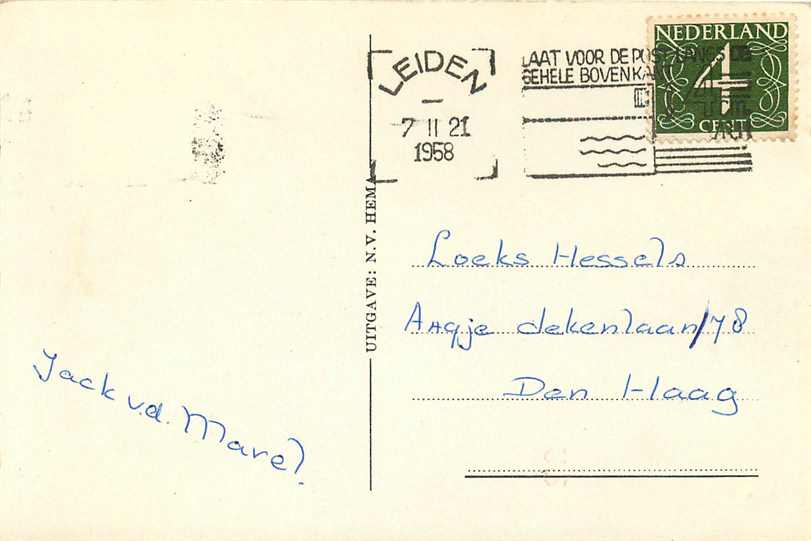 NEDERLAND
4
CENT
LEIDEN
7 II 21
1958
LAAT VOOR DE POST LANGS DE
GEHELE BOVENKANT
UITGAVE: N.V. HEMA
Loeks Hessels
Aagje dekenlaan/78
Den Haag
Jack v.d. Marel.